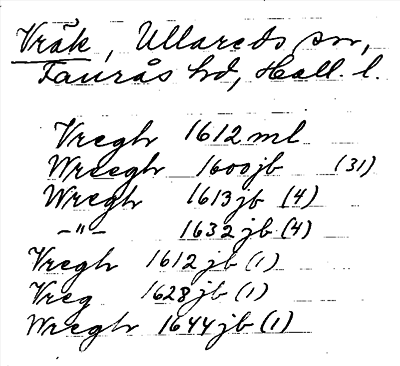 Vräk, Ullareds sn,
Faurås hd, Hall. l.
Vregh 1612 ml
Wreegh 1600 jb (31)
Wregh 1613 jb (4)
-"- 1632 jb (4)
Vregh 1612 jb (1)
Vreg 1628 jb (1)
Wregh 1644 jb (1)